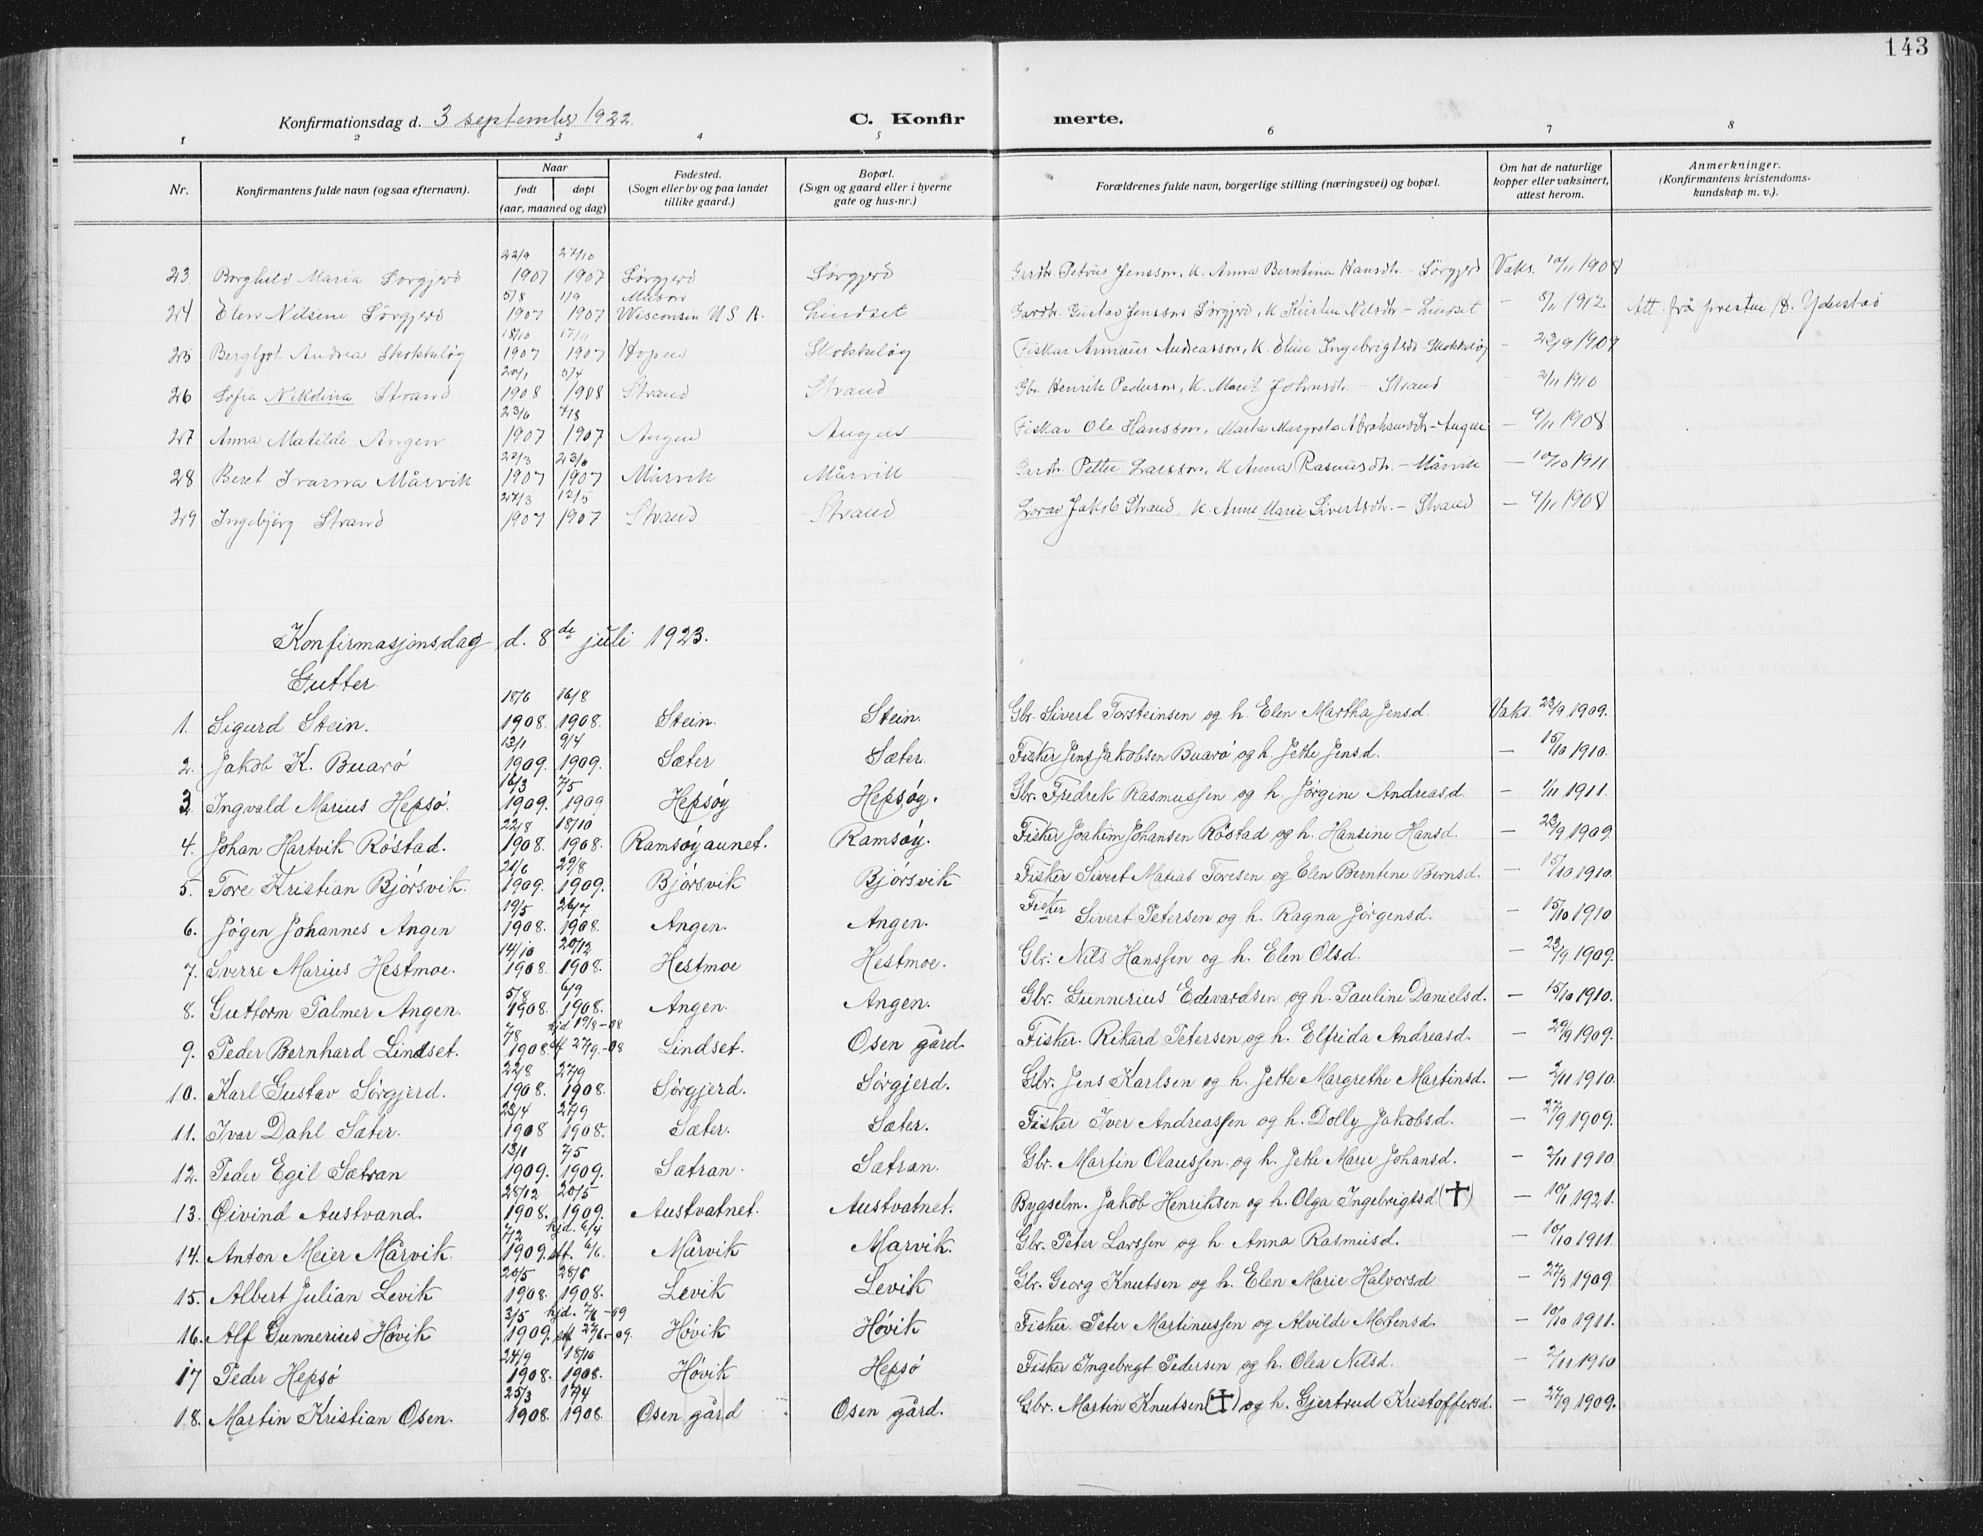 143
Konfirmationsdag d. 3 september 1922. C. Konfirmerte.
1 2 3 4 5 6 7 8
Nr. Konfirmantens fulde navn (ogsaa efternavn). Naar født døpt (aar, maaned og dag) Fødested. (Sogn eller by og paa landet tillike gaard.) Bopæl. (Sogn og gaard eller i byerne gate og hus-nr.) Forældrenes fulde navn, borgerlige stilling (næringsvei) og bopæl. Om hat de naturlige kopper eller vaksinert, attest herom. Anmerkninger. (Konfirmantens kristendoms-kundskap m. v.).
23 Borghild Maria Sørgjerd 22/9 1907 27/10 1907 Sørgjerd Sørgjerd Gardbr. Petrus Jensson, k. Anna Berntina Hansdtr - Sørgjerd Vaks. 10/11 1908
24 Elen Nilsine Sørgjerd 5/8 1907 1/9 1907 Wisconsin U S A. Lindset Gardbr. Gustav Jensson Sørgjerd, k. Kirsten Nilsdtr. - Lindset - 8/11 1912 Att. frå presten Yderstad
25 Bergljot Andrea Skokkeløy 18/10 1907 17/11 1907 Hopen Skokkeløy Fiskar Annæus Andreasson, k. Eline Ingebrigtsdr Skokkeløy - 23/9 1909
26 Sofia Nikolina Strand 20/1 1908 5/4 1908 Strand Strand Gbr. Henrik Pederson, k. Marit Johnsdtr - Strand - 2/11 1910
27 Anna Matilde Angen 23/6 1907 7/8 1907 Angen Angen Fiskar Ole Hansson, Marta Margreta Abrahamsdtr - Angen - 9/11 1908
28 Beret Ivarna Mårvik 22/3 1907 23/6 1907 Mårvik Mårvik Gardbr. Petter Larsson, k Anna Rasmusdtr. - Mårvik - 10/10 1911
29 Ingebjørg Strand 27/3 1907 12/5 1907 Strand Strand Jakob Strand, k. Anne Marie Sivertsdtr. - Strand - 9/11 1908
Konfirmasjonsdag d. 8de juli 1923.
Gutter.
1. Sigurd Stein. 18/6 1908. 16/8 1908. Stein. Stein. Gbr. Sivert Torsteinsen og h. Elen Martha Jensd. Vaks. 23/9 1909.
2. Jakob K. Buarø 13/1 1909. 9/4 1909. Sæter Sæter. Fisker Jens Jakobsen Buarø og h. Jette Jensd. - 15/10 1910.
3. Ingvald Marius Hepsø. 16/3 1909. 7/5 1909 Hepsøy Hepsøy. Gbr. Fredrek Rasmussen og h. Jørgine Andreasd. - 1/11 1911.
4. Johan Hartvik Røstad. 22/8 1908. 18/10 1908. Ramsøyaunet. Ramsøy. Fisker Joakim Johansen Røstad og h. Hansine Hansd. - 23/9 1909
5. Tore Kristian Bjørsvik. 21/6 1909. 29/8 1909. Bjørsvik Bjørsvik Fisker Sivert Matias Toresen og Elen Berntine Bernsd. - 15/10 1910.
6. Jøgen Johannes Angen 19/5 1908. 26/7 1908. Angen. Angen. Fisker Sivert Petersen og h. Ragna Jørgensd. - 15/10 1910
7. Sverre Marius Hestmoe. 14/10 1908. 20/12 1908. Hestmoe Hestmoe. Gbr: Nils Hanssen og h. Elen Olsd. - 23/9 1909.
8. Guttorm Palmer Angen. 5/8 1908. 6/9 1908. Angen. Angen. Gbr. Gunnerius Edvardsen og h. Pauline Danielsd. - 15/10 1910.
9. Peder Bernhard Lindset. 7/8 1908. hjd 19/8-08 eft 27/9-08 Lindset. Osen gård. Fisker. Rikard Petersen og h. Elfrida Andreasd. - 29/9 1909.
10. Karl Gustav Sørgjerd. 22/8 1908. 27/9 1908. Sørgjerd. Sørgjerd. Gbr. Jens Karlsen og h. Jette Margrethe Martinsd. - 2/11 1910.
11. Ivar Dahl Sæter. 23/4 1908 27/9 1908. Sæter. Sæter. Fisker Iver Andreassen og h. Dolly Jakobsd. - 27/9 1909.
12. Peder Egil Sætran 13/1 1909. 7/5 1909. Sætran. Sætran. Gbr. Martin Olaussen og h. Jette Marie Johansd. - 2/11 1910
13. Øivind Austvand. 28/12 1908. 20/5 1909. Austvatnet. Austvatnet. Bygselm. Jakob Henriksen og h. Olga Ingebrigtsd (†) - 10/1 1921.
14. Anton Meier Mårvik 7/2 1909. hjd. 6/4 eft. 6/6. Mårvik Marvik. Gbr. Peter Larssen og h. Anna Rasmusd. - 10/10 1911.
15. Albert Julian Levik 20/5 1908. 28/6 1908. Levik Levik Gbr. Georg Knutsen og h. Elen Marie Halvorsd - 27/9 1909
16. Alf Gunnerius Høvik 3/5 1909. hjd. 7/6-09 eft 27/6-09. Høvik Høvik Fisker. Peter Martinussen og Alvilde Motensd. - 10/10 1911.
17 Peder Hepsø 24/9 1908. 18/10 1908. Høvik Hepsø Fisker Ingebrigt Pedersen og h. Olea Nilsd. - 2/11 1910
18. Martin Kristian Osen. 25/3 1908. 17/4 1908. Osen gård Osen gård. Gbr. Martin Knutsen (†) og h. Gjertrud Kristoffersd. - 27/9 1909.